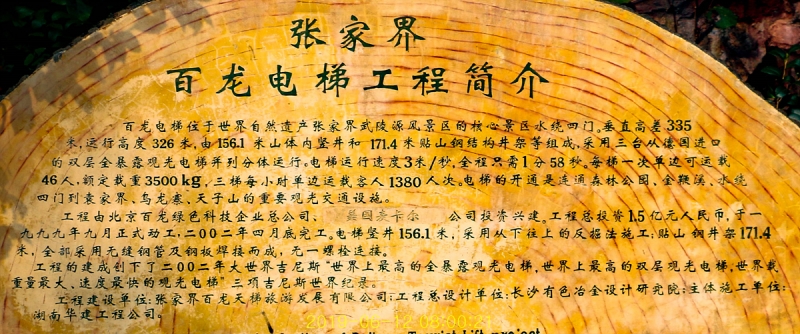 张家界
百龙电梯工程简介
百龙电梯位于世界自然遗产张家界武陵源风景区的核心景区水绕四门。垂直高差335
米,运行高度326米,由156.1米山体内竖井和171.4米贴山钢结构井架等组成,采用三台从德国进口
的双层全暴露观光电梯并列分体运行。电梯运行速度3米/秒,全程只需1分58秒。每梯一次单边可运载
46人,额定载重3500kg,三梯每小时单边运载客人1380人次。电梯的开通是连通森林公园、金鞭溪、水绕
四门到袁家界、乌龙寨、天子山的重要观光交通设施。
工程由北京百龙绿色科技企业总公司、 公司投资兴建。工程总投资1.5亿元人民币,于一
九九九年九月正式动工,二00二年四月底完工。电梯竖井156.1米,采用从下往上的反掘法施工;贴山钢井架171.4
米,全部采用无缝钢管及钢板焊接而成,无一螺栓连接。
工程的建成创下了二00二年大世界吉尼斯“世界上最高的全暴露观光电梯,世界上最高的双层观光电梯,世界载
重量最大、速度最快的观光电梯”三项吉尼斯世界纪录。
工程建设单位:张家界百龙天梯旅游发展有限公司;工程总设计单位:长沙有色冶金设计研究院;主体施工单位:
湖南华建工程公司。
Tourist Lift project